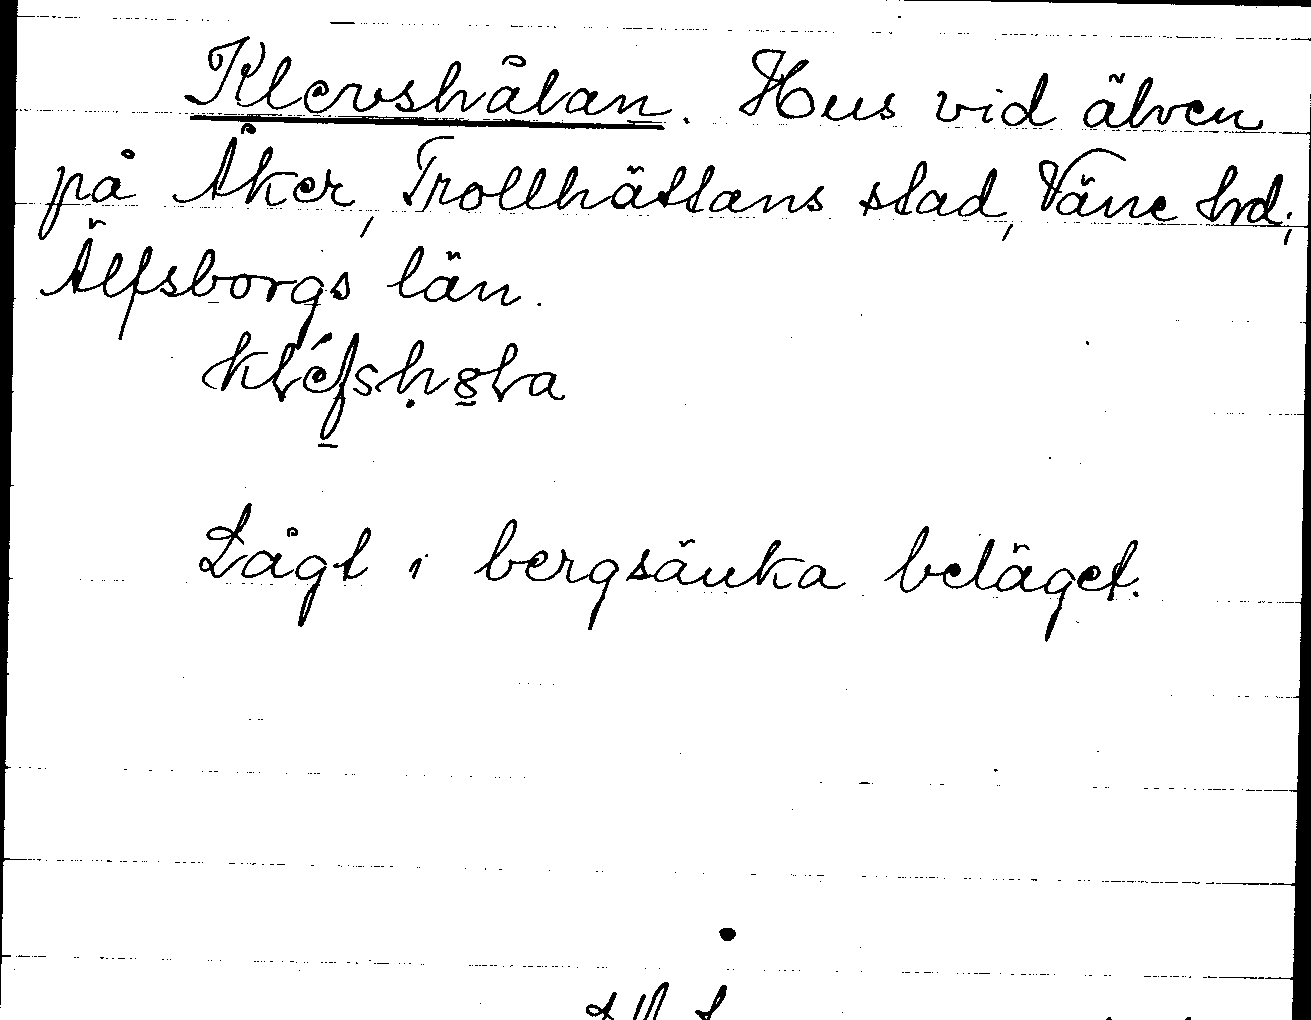 Klevshålan. Hus vid älven
på Åker, Trollhättans stad, Väne hd;
Älfsborgs län.
kléfshola
Lågt i bergsänka beläget.